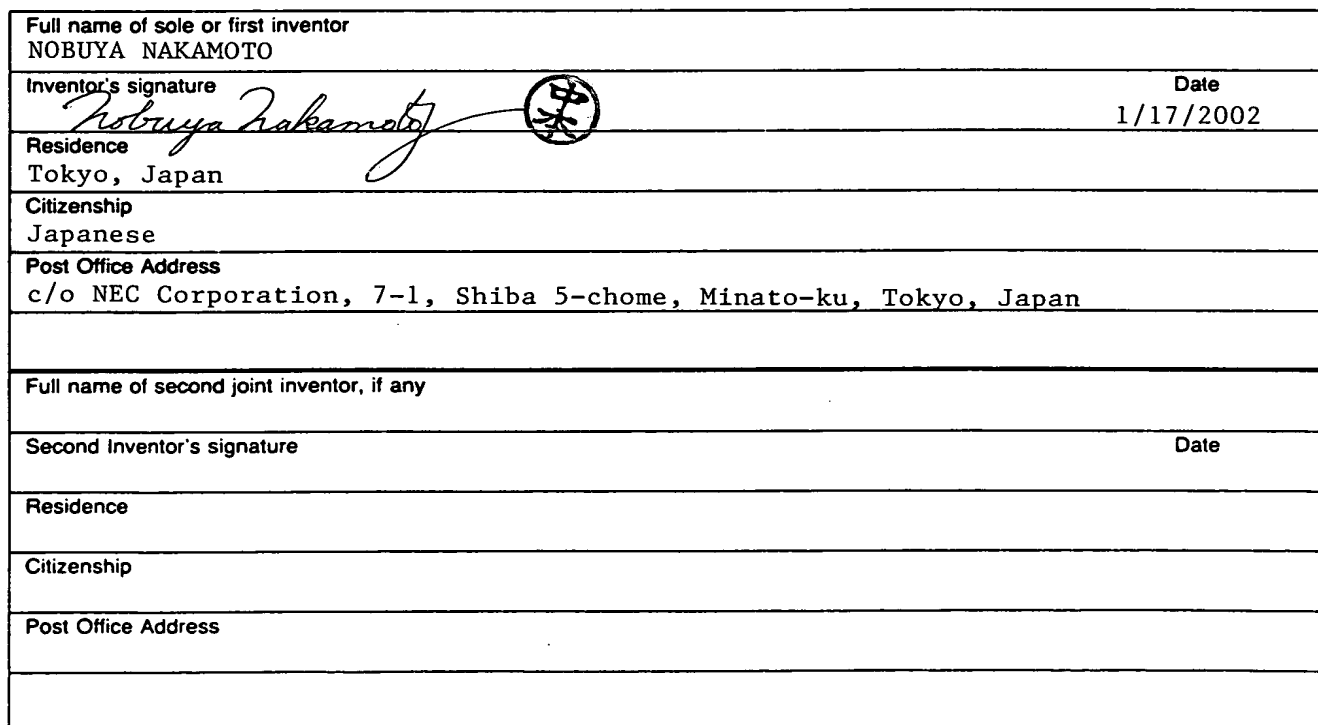 Full name of sole or first inventor
NOBUYA NAKAMOTO
Inventor's signature
Nobuya Nakamoto
中本
Date
1/17/2002
Residence
Tokyo, Japan
Citizenship
Japanese
Post Office Address
c/o NEC Corporation, 7-1, Shiba 5-chome, Minato-ku, Tokyo, Japan
Full name of second joint inventor, if any
Second Inventor's signature
Date
Residence
Citizenship
Post Office Address